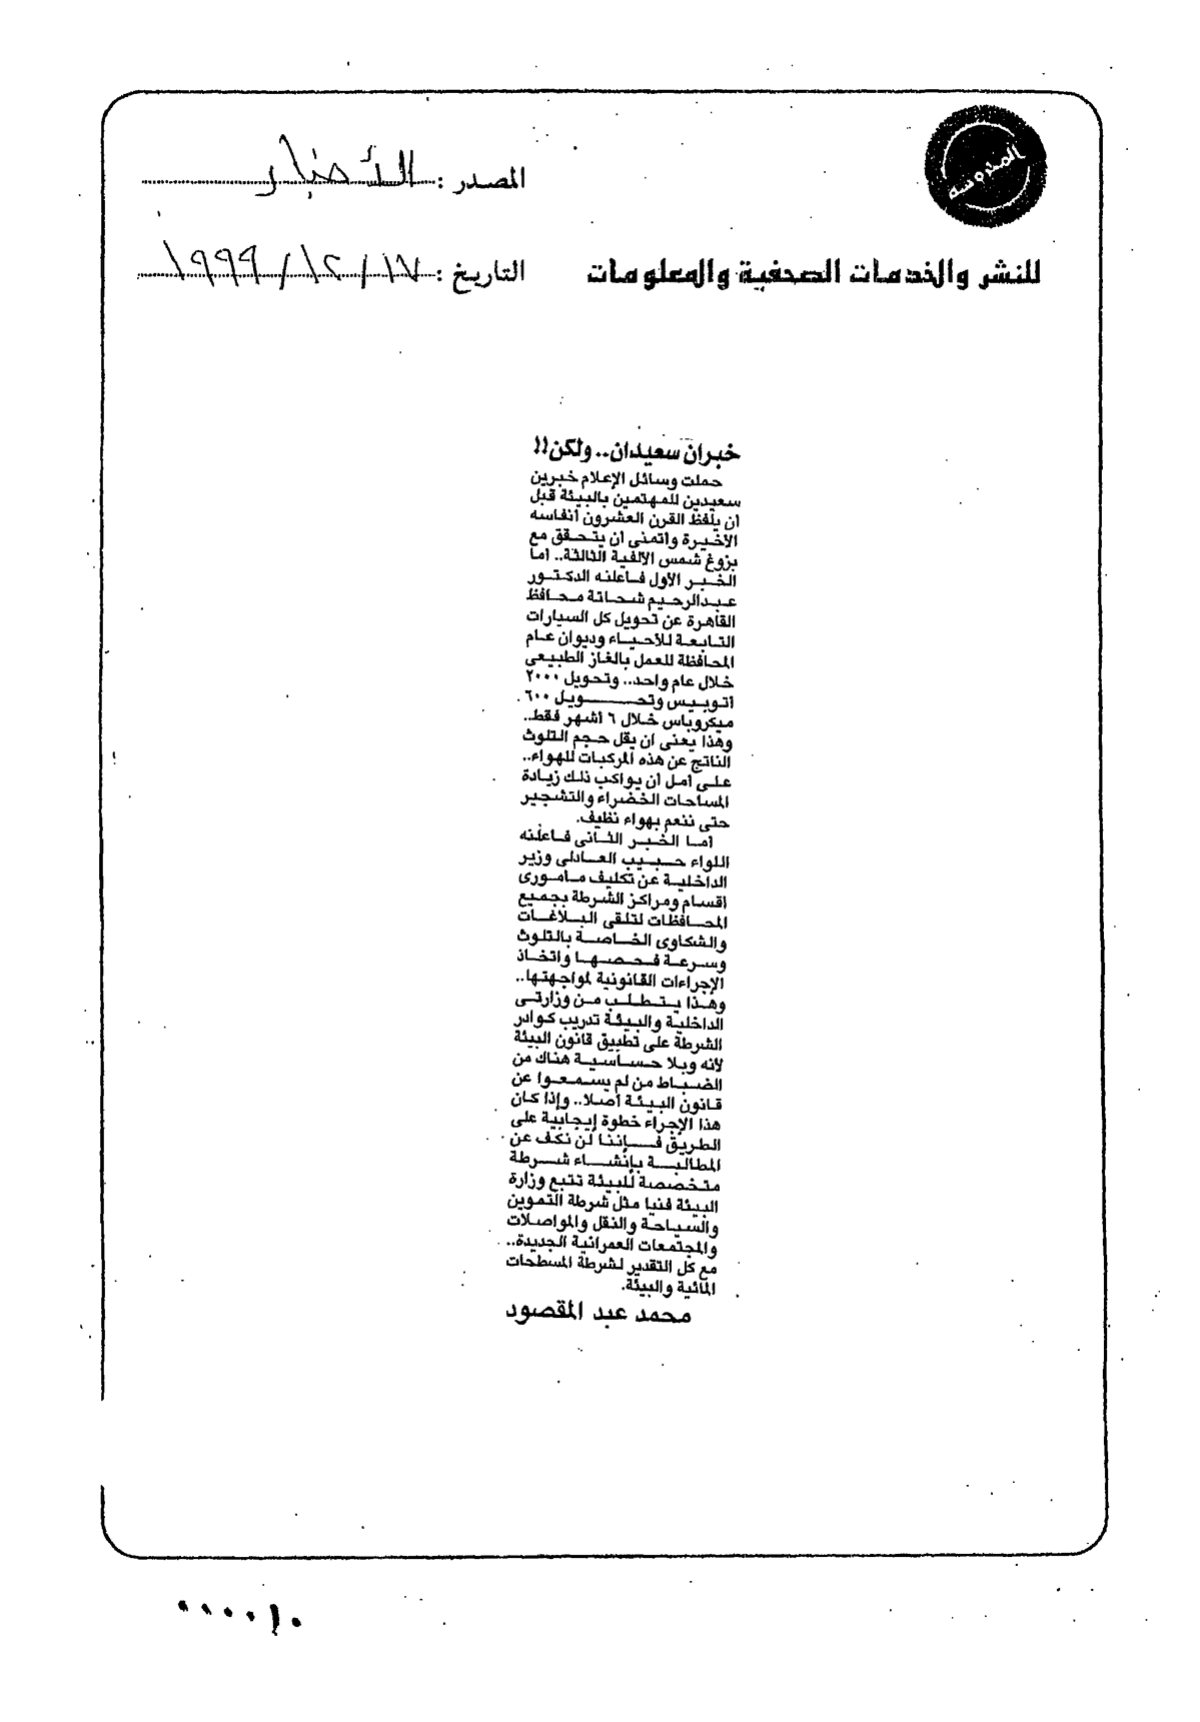 المحروسة
المصدر : الأخبار
للنشر والخدمات الصحفية والمعلومات
التاريخ : ١٧ / ١٢ / ١٩٩٩
خبران سعيدان.. ولكن!!
حملت وسائل الإعلام خبرين
سعيدين للمهتمين بالبيئة قبل
أن يلفظ القرن العشرون أنفاسه
الأخيرة وأتمنى أن يتحقق مع
بزوغ شمس الألفية الثالثة.. أما
الخبر الأول فأعلنه الدكتور
عبدالرحيم شحاتة محافظ
القاهرة عن تحويل كل السيارات
التابعة للأحياء وديوان عام
المحافظة للعمل بالغاز الطبيعى
خلال عام واحد.. وتحويل ٢٠٠٠
أتوبيس وتحويل ٦٠٠
ميكروباس خلال ٦ أشهر فقط..
وهذا يعنى أن يقل حجم التلوث
الناتج عن هذه المركبات للهواء..
على أمل أن يواكب ذلك زيادة
المساحات الخضراء والتشجير
حتى ننعم بهواء نظيف.
أما الخبر الثانى فأعلنه
اللواء حبيب العادلى وزير
الداخلية عن تكليف مأمورى
أقسام ومراكز الشرطة بجميع
المحافظات لتلقى البلاغات
والشكاوى الخاصة بالتلوث
وسرعة فحصها واتخاذ
الإجراءات القانونية لمواجهتها..
وهذا يتطلب من وزارتى
الداخلية والبيئة تدريب كوادر
الشرطة على تطبيق قانون البيئة
لأنه وبلا حساسية هناك من
الضباط من لم يسمعوا عن
قانون البيئة أصلا.. وإذا كان
هذا الإجراء خطوة إيجابية على
الطريق فإننا لن نكف عن
المطالبة بإنشاء شرطة
متخصصة للبيئة تتبع وزارة
البيئة فنيا مثل شرطة التموين
والسياحة والنقل والمواصلات
والمجتمعات العمرانية الجديدة..
مع كل التقدير لشرطة المسطحات
المائية والبيئة.
محمد عبد المقصود